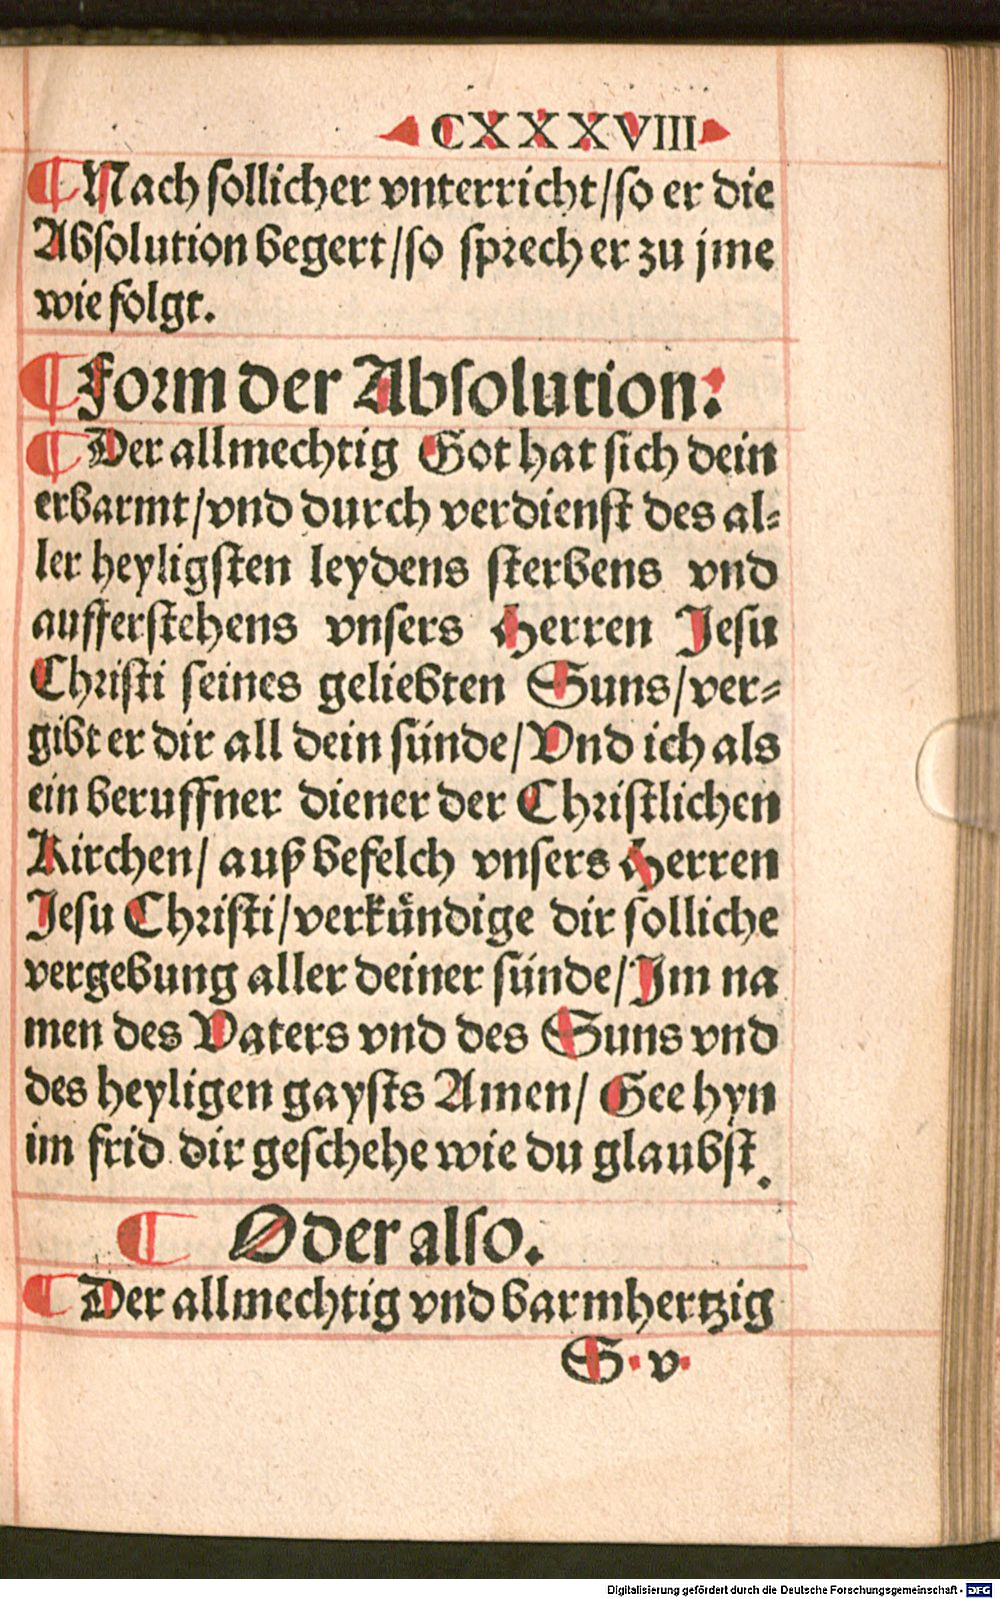 CXXXVIII
¶ Nach sollicher vnterricht/so er die
Absolution begert/so sprech er zu jme
wie folgt.
¶ Form der Absolution:
¶ Der allmechtig Got hat sich dein
erbarmt/vnd durch verdienst des al-
ler heyligsten leydens sterbens vnd
aufferstehens vnsers Herren Jesu
Christi seines geliebten Suns/ver-
gibt er dir all dein sünde/Vnd ich als
ein beruffner diener der Christlichen
Kirchen/ auß befelch vnsers Herren
Jesu Christi/verkündige dir solliche
vergebung aller deiner sünde/Im na
men des Vaters vnd des Suns vnd
des heyligen gaysts Amen/ Gee hyn
im frid dir geschehe wie du glaubst.
¶ Oder also.
¶ Der allmechtig vnd barmhertzig
S. v.
Digitalisierung gefördert durch die Deutsche Forschungsgemeinschaft - DFG